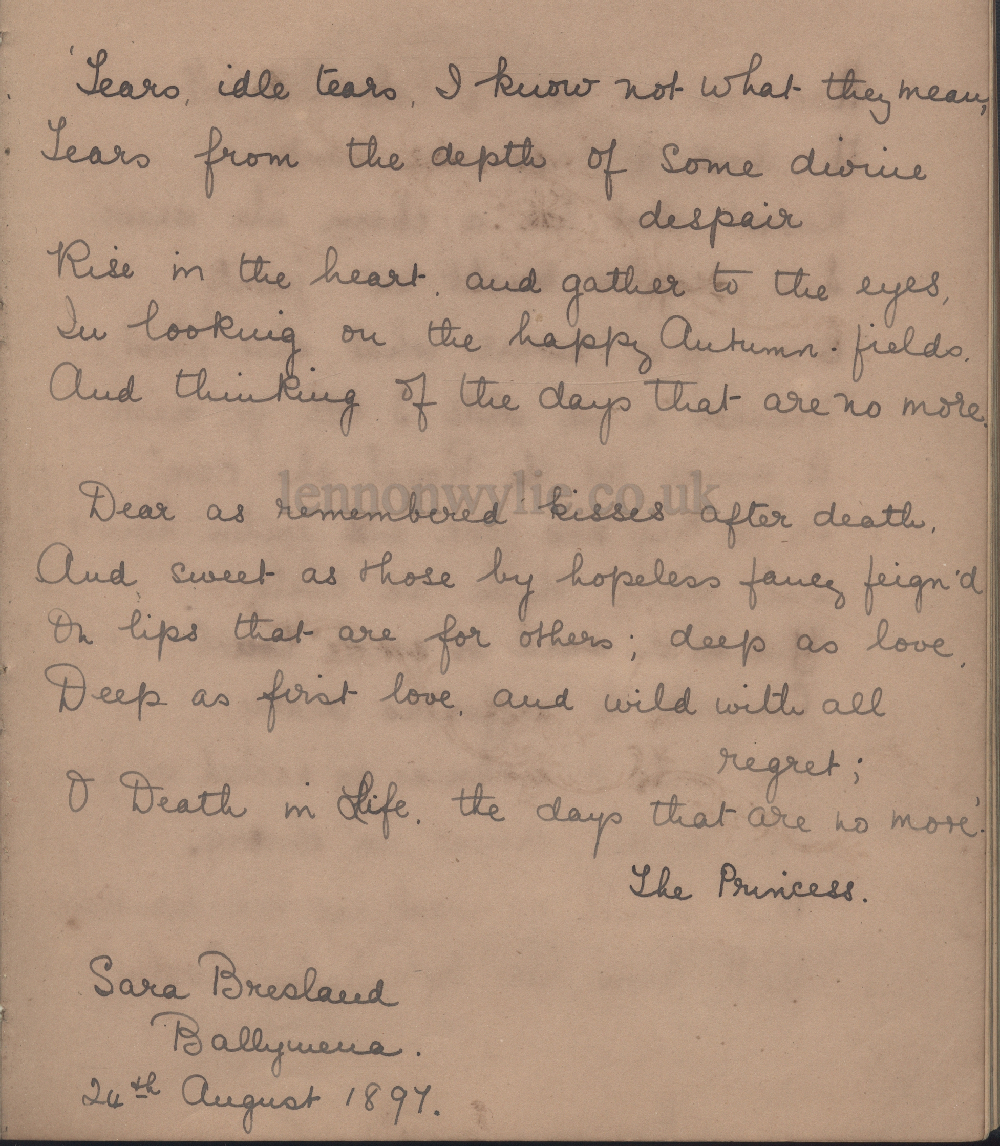 'Tears, idle tears, I know not what they mean,
Tears from the depth of some divine
despair
Rise in the heart, and gather to the eyes,
In looking on the happy Autumn-fields,
And thinking of the days that are no more.
lennonwylie.co.uk
Dear as remembered kisses after death,
And sweet as those by hopeless fancy feign'd
On lips that are for others; deep as love,
Deep as first love, and wild with all
regret;
O Death in Life, the days that are no more.'
The Princess.
Sara Breslaud
Ballymena.
24th August 1897.